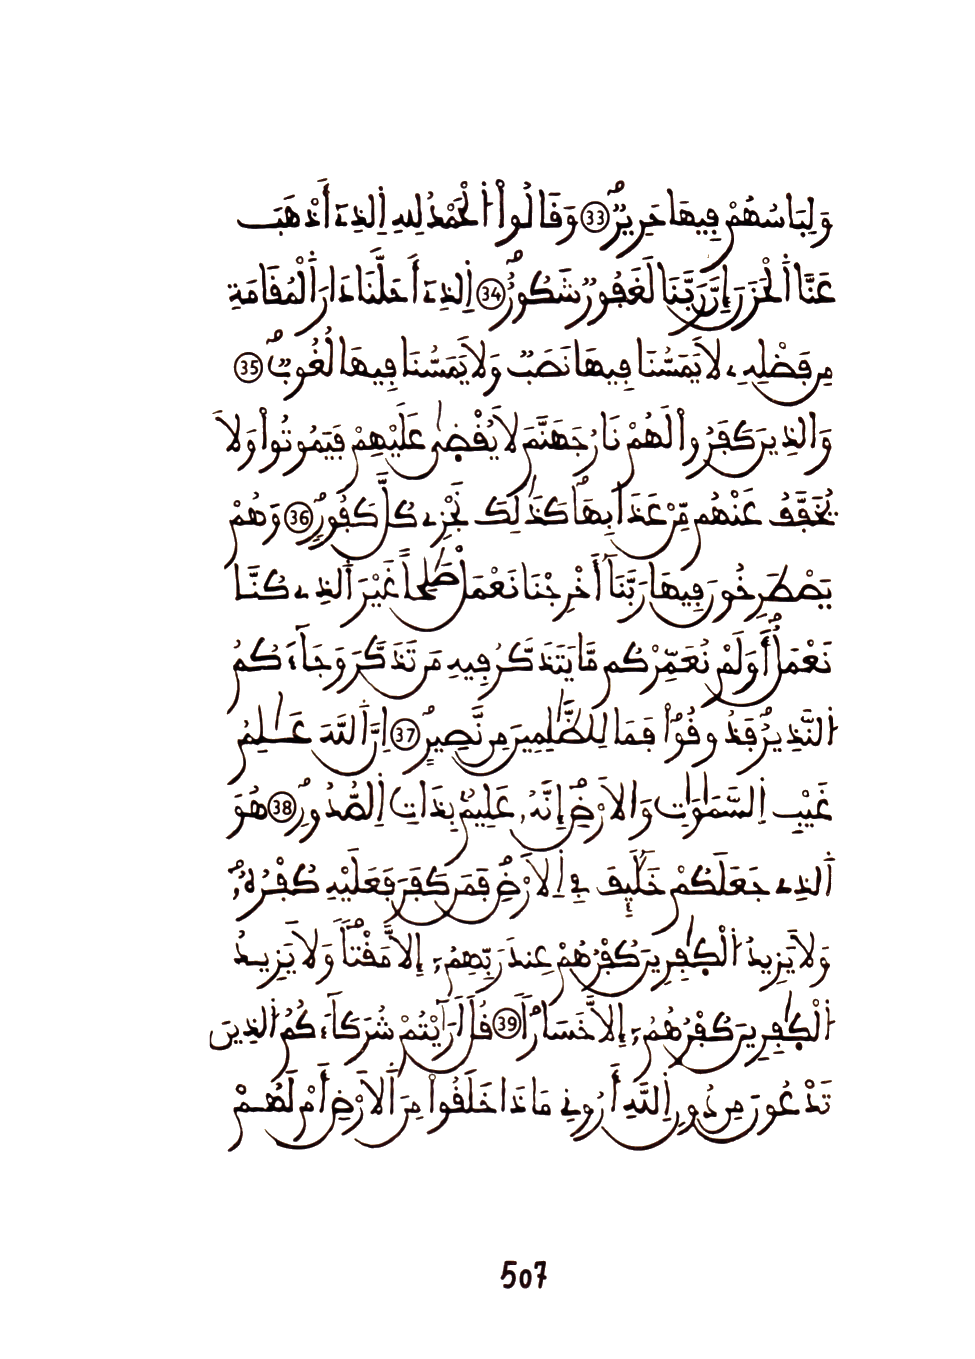 وَلِبَاسُهُمْ فِيهَا حَرِيرٌ 33 وَقَالُوا۟ اُ۬لْحَمْدُ لِلهِ اِ۬لذِےٓ أَذْهَبَ
عَنَّا اَ۬لْحَزَنَ إِنَّ رَبَّنَا لَغَفُورٌ شَكُورٌ 34 اِ۬لذِےٓ أَحَلَّنَا دَارَ اَ۬لْمُقَامَةِ
مِن فَضْلِهِۦ لَا يَمَسُّنَا فِيهَا نَصَبٌ وَلَا يَمَسُّنَا فِيهَا لُغُوبٌ 35
وَالذِينَ كَفَرُوا۟ لَهُمْ نَارُ جَهَنَّمَ لَا يُقْضَىٰ عَلَيْهِمْ فَيَمُوتُوا۟ وَلَا
يُخَفَّفُ عَنْهُم مِّنْ عَذَابِهَا كَذَٰلِكَ نَجْزِے كُلَّ كَفُورٍ 36 وَهُمْ
يَصْطَرِخُونَ فِيهَا رَبَّنَآ أَخْرِجْنَا نَعْمَلْ صَٰلِحاً غَيْرَ اَ۬لذِے كُنَّا
نَعْمَلُ أَوَلَمْ نُعَمِّرْكُم مَّا يَتَذَكَّرُ فِيهِ مَن تَذَكَّرَ وَجَآءَكُمُ
اُ۬لنَّذِيرُ فَذُوقُوا۟ فَمَا لِلظَّٰلِمِينَ مِن نَّصِيرٍ 37 اِنَّ اَ۬للَّهَ عَٰلِمُ
غَيْبِ اِ۬لسَّمَٰوَٰتِ وَالَارْضِ إِنَّهُۥ عَلِيمٌ بِذَاتِ اِ۬لصُّدُورِ 38 هُوَ
اَ۬لذِے جَعَلَكُمْ خَلَٰٓئِفَ فِے اِ۬لَارْضِ فَمَن كَفَرَ فَعَلَيْهِ كُفْرُهُۥ
وَلَا يَزِيدُ اُ۬لْكَٰفِرِينَ كُفْرُهُمْ عِندَ رَبِّهِمُۥٓ إِلَّا مَقْتاً وَلَا يَزِيدُ
اُ۬لْكَٰفِرِينَ كُفْرُهُمُۥٓ إِلَّا خَسَاراً 39 قُلَ اَرَآيْتُمْ شُرَكَآءَكُمُ اُ۬لذِينَ
تَدْعُونَ مِن دُونِ اِ۬للَّهِ أَرُونِے مَاذَا خَلَقُوا۟ مِنَ اَ۬لَارْضِ أَمْ لَهُمْ
507